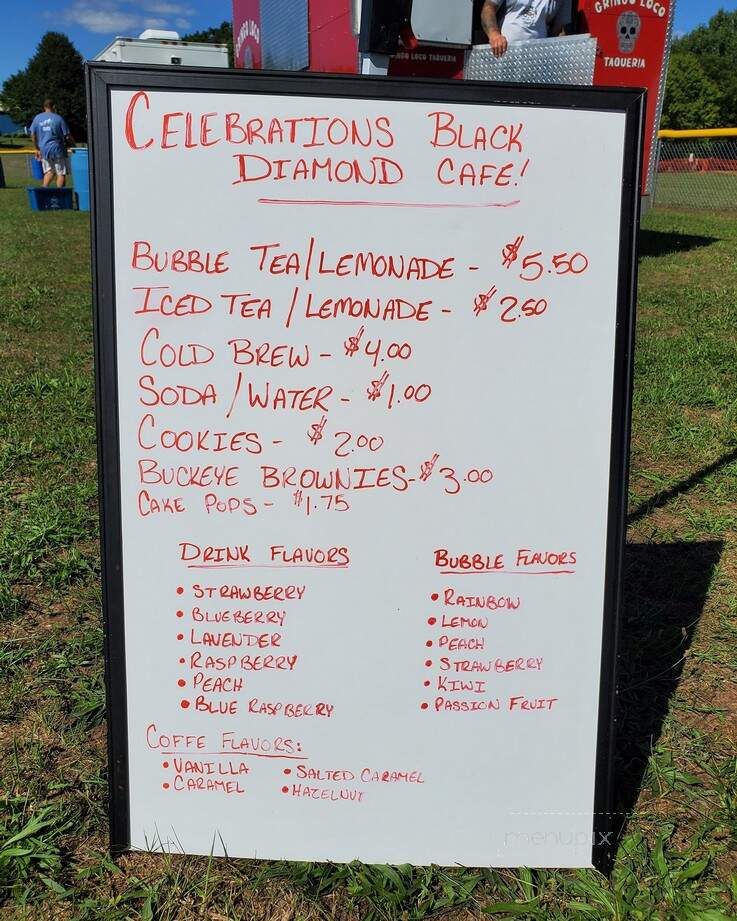 GRINGO LOCO
TAQUERIA
GRINGO LOCO TAQUERIA
CELEBRATIONS BLACK
DIAMOND CAFE!
BUBBLE TEA/LEMONADE - $5.50
ICED TEA / LEMONADE - $2.50
COLD BREW - $4.00
SODA / WATER - $1.00
COOKIES - $2.00
BUCKEYE BROWNIES - $3.00
CAKE POPS - $1.75
DRINK FLAVORS
• STRAWBERRY
• BLUEBERRY
• LAVENDER
• RASPBERRY
• PEACH
• BLUE RASPBERRY
BUBBLE FLAVORS
• RAINBOW
• LEMON
• PEACH
• STRAWBERRY
• KIWI
• PASSION FRUIT
COFFE FLAVORS:
• VANILLA
• CARAMEL
• SALTED CARAMEL
• HAZELNUT
menupix